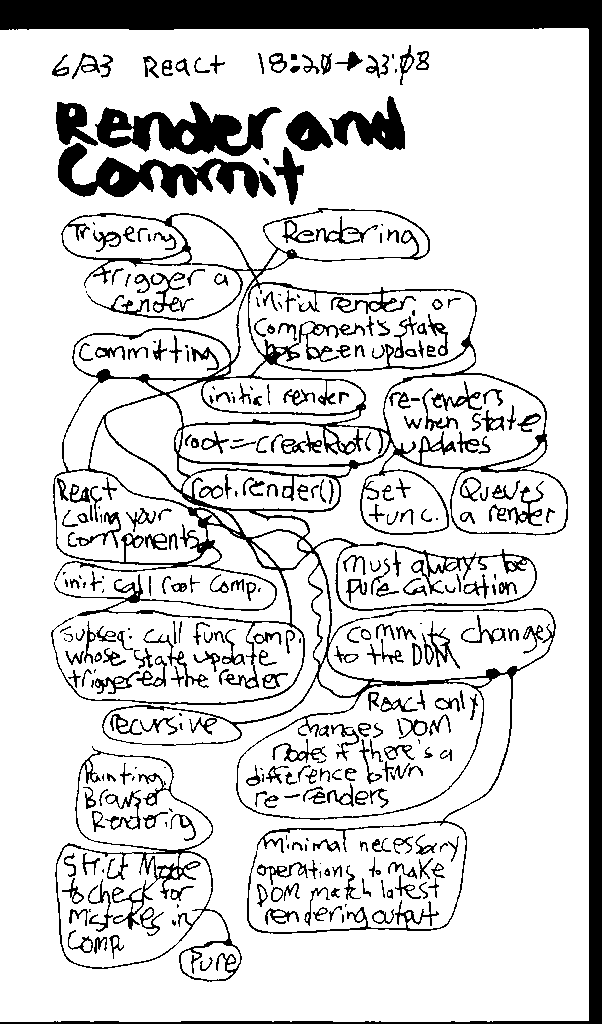 6/23 React 18:20→23:08
Render and
Commit
Triggering
Rendering
trigger a
render
initial render, or
component's state
has been updated
Committing
initial render
re-renders
when state
updates
root = createRoot()
root.render()
Set
func.
Queues
a render
React
calling your
components
must always be
pure calculation
init: call root comp.
Subseq: call func comp.
whose state update
triggered the render
commits changes
to the DOM
recursive
React only
changes DOM
nodes if there's a
difference btwn
re-renders
Painting,
Browser
Rendering
minimal necessary
operations to make
DOM match latest
rendering output
Strict Mode
to check for
mistakes in
Comp
Pure